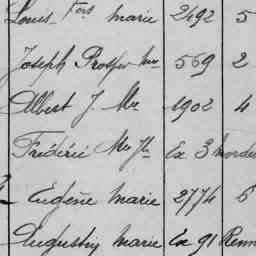 Louis Fois marie 2492 5
Joseph Prosper Mie 569 2
Albert J. Mie 1902 4
Frédéric Mie Jh Ex 3 Mordel
Eugène Marie 2774 6
Augustin Marie Ex 91 Renn